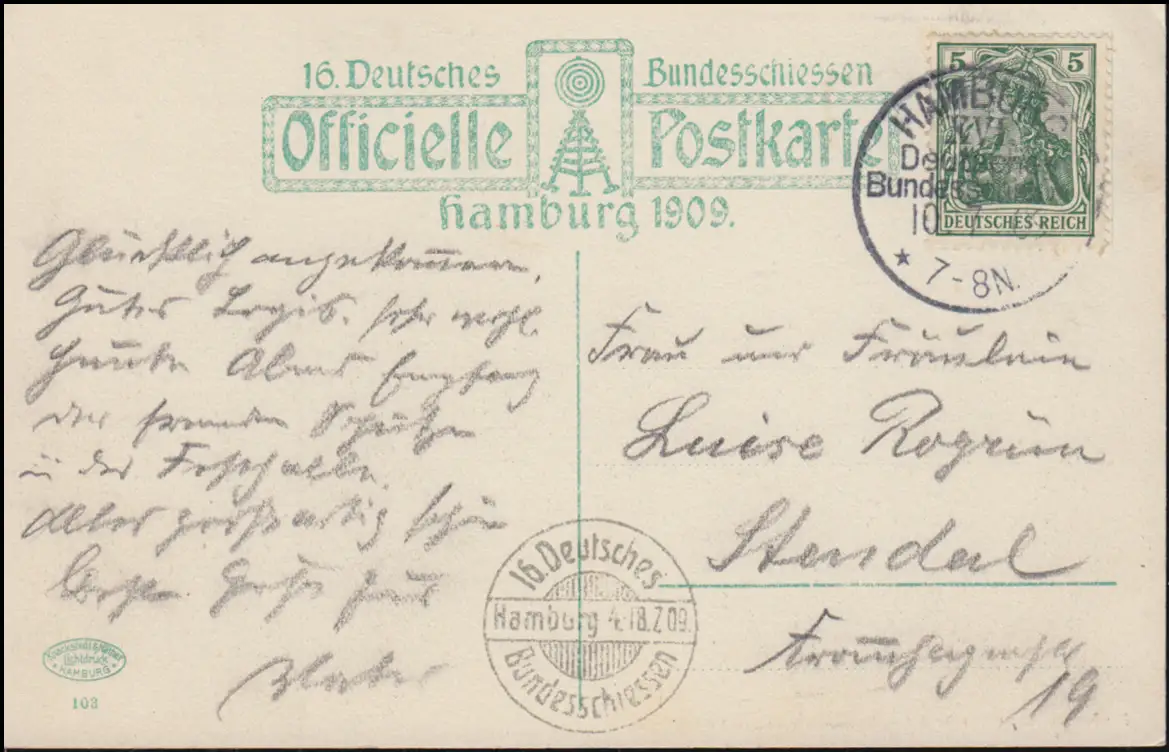 16. Deutsches Bundesschiessen
Officielle Postkarte
Hamburg 1909.
5 5
DEUTSCHES REICH
HAMBURG
XVI.
Deutsches
Bundessch
10
7-8N.
Glücklich angekommen,
Gutes Logis. sehr wohl.
Heute Abend Empfang
der fremden Schützen
in der Festhalle.
Alles großartig schön
Beste Grüße
Frau und Fräulein
Luise Rogrün
Stendal
19
16. Deutsches
Hamburg 4.-18.7.09.
Bundesschiessen
Lichtdruck
HAMBURG
103